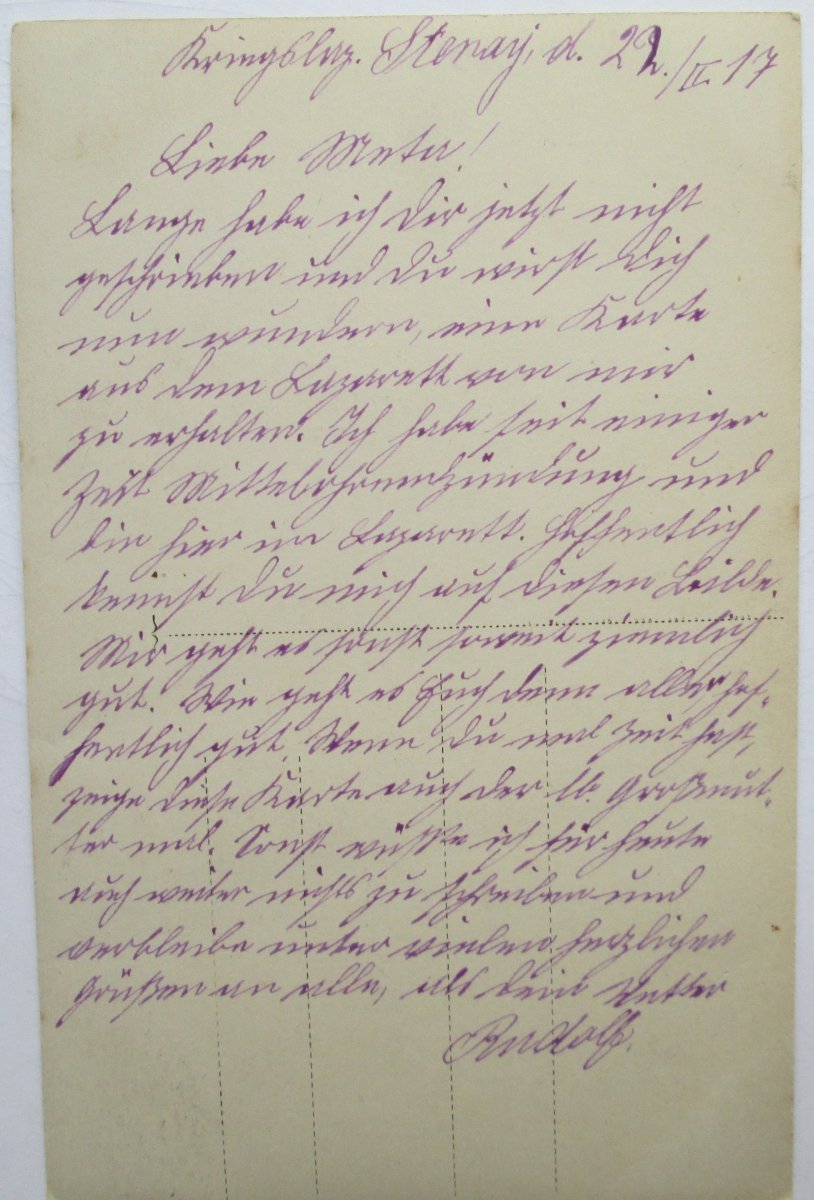 Kriegslaz. Stenay, d. 22./II. 17
Liebe Meta!
Lange habe ich dir jetzt nicht
geschrieben und du wirst dich
nun wundern, eine Karte
aus dem Lazarett von mir
zu erhalten. Ich habe seit einiger
Zeit Mittelohrenentzündung und
bin hier im Lazarett. Hoffentlich
kennst du mich auf diesen Bilde.
Mir geht es sonst soweit ziemlich
gut. Wie geht es Euch denn allen hof-
fentlich gut. Wenn du mal Zeit hast,
zeige diese Karte auch der lb. Großmut-
ter mal. Sonst wüßte ich für heute
auch weiter nichts zu schreiben und
verbleibe unter vielen herzlichen
Grüßen an alle, als dein Vetter
Rudolf.